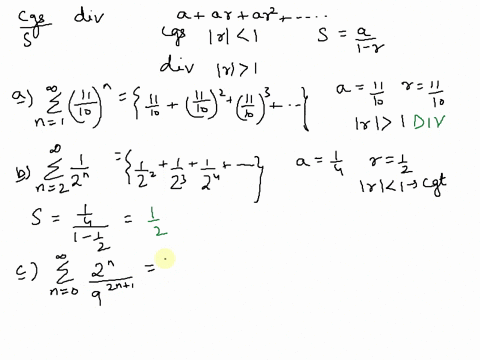 cgs div a + ar + ar² + .....
S cgs |r| < 1 S = a/(1-r)
div |r| > 1
a) ∑_{n=1}^{∞} (11/10)^n = {11/10 + (11/10)² + (11/10)³ + ...} a = 11/10 r = 11/10
|r| > 1 DIV
b) ∑_{n=2}^{∞} 1/2^n = {1/2² + 1/2³ + 1/2⁴ + ....} a = 1/4 r = 1/2
|r| < 1 → cgt
S = (1/4)/(1 - 1/2) = 1/2
c) ∑_{n=0}^{∞} 2^n/9^{2n+1} =